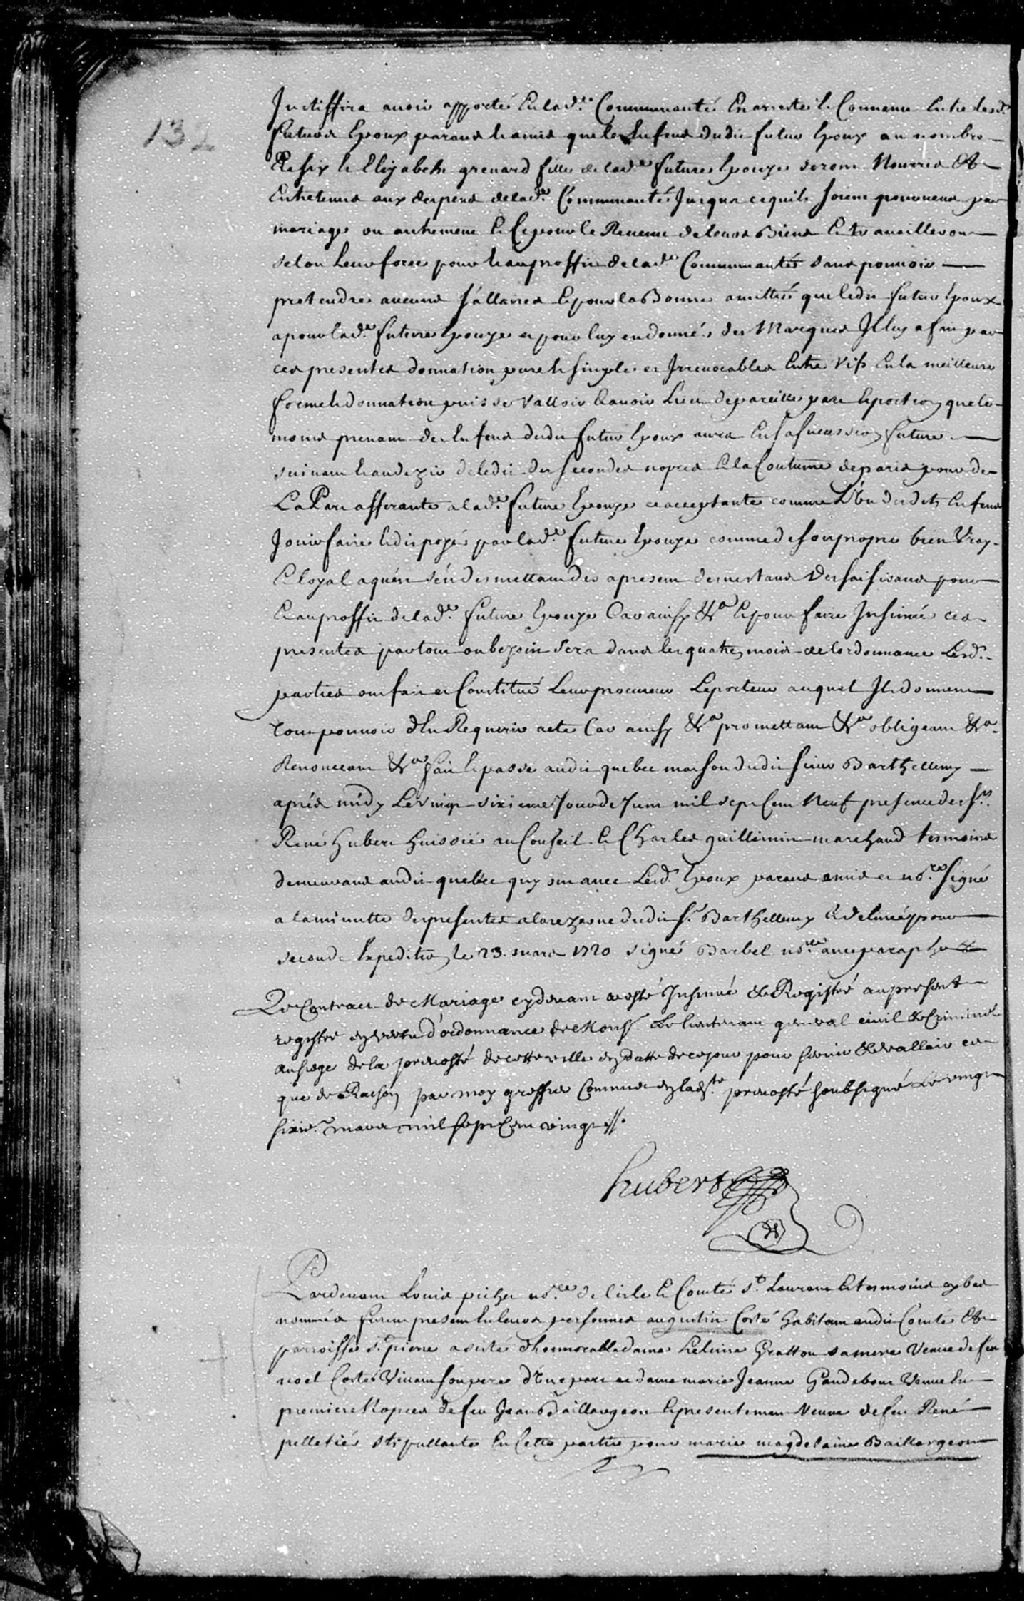 132
Justiffira avoir apporté En lad.e Communauté En arreste Convenu Entre lesd.
futurs Epoux parans & amis que les Enfans dudit futur Epoux au nombre
De six & Elizabeth grenard fille de lad.e future Epouze seront Nourris &
Entretenus aux despens de lad.e Communauté Jusqua cequils soient pourveus par
mariage ou autrement Et Ce pour le Revenu de leurs Biens Et travailleront
selon Leur force pour & au proffit de lad.e Communauté sans pouvoir
pretendre aucuns sallaires Et pour la Bonne amittié que ledit futur Epoux
a pour lad.e future Epouze et pour luy en donner des Marques Il luy a fait par
ces presentes donnation pure & simple et Irrevocable Entre Vifs En la meilleure
forme & donnation puisse Valloir & avoir Lieu de pareille part & portion que le
moins prenant des Enfans dudit futur Epoux aura En sa succession future
suivant Ledit des secondes nopces & la Coutume de paris pour de
La Part afferante a lad.e future Epouze ce acceptante comme L'un desdits Enfans
Jouir faire & dispozer par lad.e future Epouze comme de son propre bien Vray
& loyal aquest se desmettant des a present desmetans dessaisisans pour
& au proffit de lad.e future Epouze Car ainsy &a Et pour faire Insinuer ces
presentes partout ou bezoin sera dans les quatre mois de lordonnance Lesd.
parties ont fait et Constitué Leur procureur Le porteur auquel Ils donnent
tout pouvoir d'En Requerir acte Car ainsy &a promettant &a obligeant &a
Renonceant &a fait & passé audit quebec maison dudit sieur Barthellemy
aprés midy Le vingt sixieme Jour de Juin mil sept Cent Neuf presence des Srs
René hubert huissié au Conseil & Charles guillimin marchand temoins
demeurans audit quebec quy ont avec Lesd. Epoux parans amis et no.re signé
a la minutte des presentes a la rezerve dudit S.r Barthellemy & delivré pour
seconde Expedition le 23 mars 1720 signé Barbel no.re avec paraphe
Le Contract de Mariage cy devant a esté Insinué & Registré au present
registre en vertu d'ordonnance de Mons.r Le lieutenant general civil & Criminel
au siege de la prevosté de cette ville en datte de ce jour pour servir & valloir ce
que de Raison par moy greffier Commis en lad.te prevosté soubsigné Le vingt
sixie. mars mil sept Cent vingt
hubert
Pardevant Louis pichet no.re de lisle & Comté S.t Laurent & temoins cy bas
nommés furent present En leurs personnes augustin Coté habitant audit Comté &
parroisse S.t pierre assisté d'honnorable dame heleine Gratton sa mere Veuve de feu
noel Coté Vivant son pere d'Une part et dame marie Jeanne Gaudebout Veuve En
premiere Nopces de feu Jean Baillargeon & presentement Veuve de feu René
pelletiés stipullante En Cette partie pour marie magdelaine Baillargeon